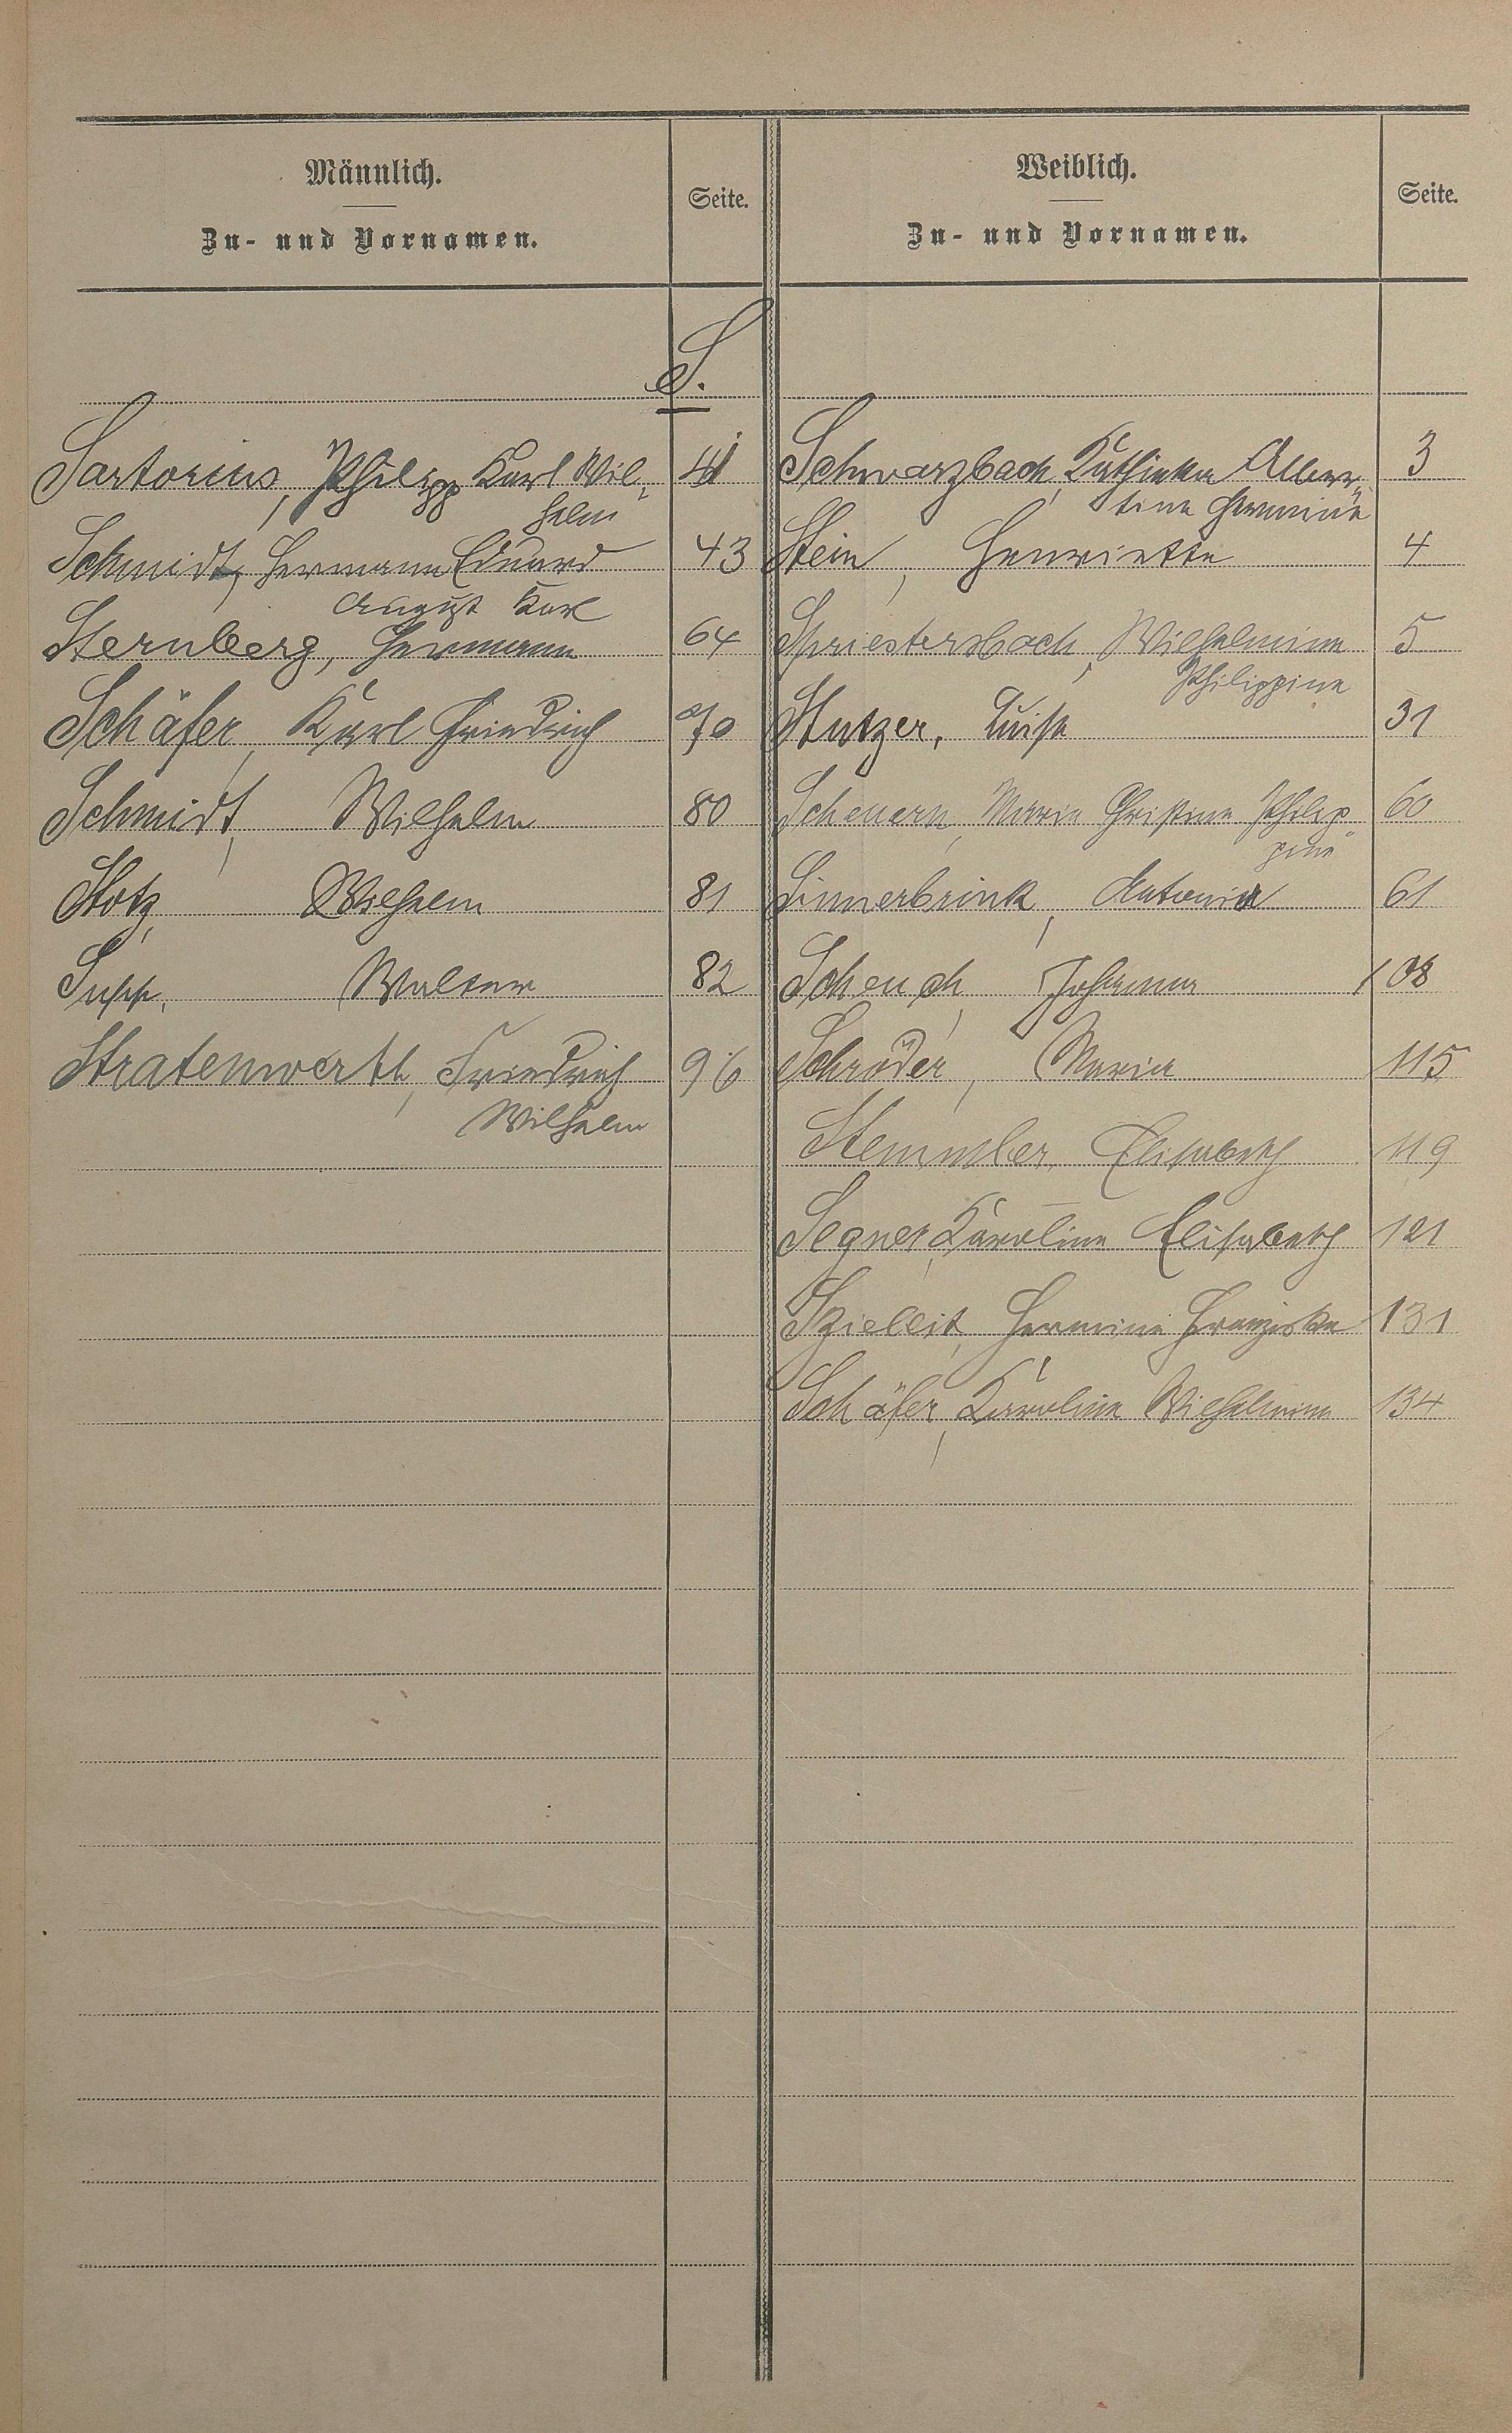 Männlich.
Zu- und Vornamen.
Seite.
Weiblich.
Zu- und Vornamen.
Seite.
S.
Sartorius, Philipp Karl Wil-
helm
41
Schmidt, Hermann Eduard
August Karl
43
Sternberg, Hermann
64
Schäfer, Karl Friedrich
70
Schmidt, Wilhelm
80
Stotz, Wilhelm
81
Supp, Walter
82
Stratenwerth, Friedrich
Wilhelm
96
Schwarzbach, Kathinka Alber-
tine Hermine
3
Stein, Henriette
4
Spriestersbach, Wilhelmine
Philippine
5
Stutzer, Luise
31
Scheuern, Marie Christine Philip-
pine
60
Sinnerbrink, Antonie
61
Scheuch, Johanna
108
Schröder, Maria
115
Stemmler, Elisabeth
119
Segner, Karoline Elisabeth
121
Szielleit, Hermine Franziska
131
Schäfer, Karoline Wilhelmine
134